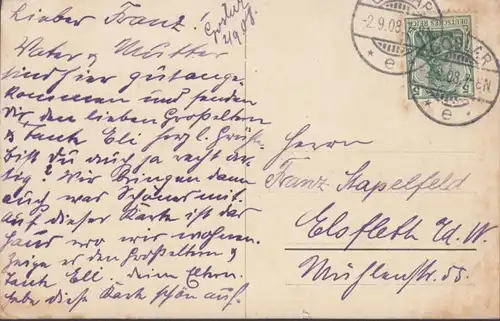 Lieber Franz!
Goslar
2/9 08.
Vater & Mutter
sind hier gut ange-
kommen und senden
Dir, den lieben Großeltern
& Tante Eli herzl. Grüße.
Bist Du auch ja recht ar-
tig? Wir bringen dann
auch was Schönes mit.
Auf dieser Karte ist das
Haus wo wir wohnen.
Zeige es den Großeltern &
Tante Eli. Deine Eltern.
Hebe diese Karte schön auf.
-2.9.08
* e *
DEUTSCHES REICH
5 5
* e *
Herrn
Franz Stapelfeld
Elsfleth i/d. W.
Mühlenstr.